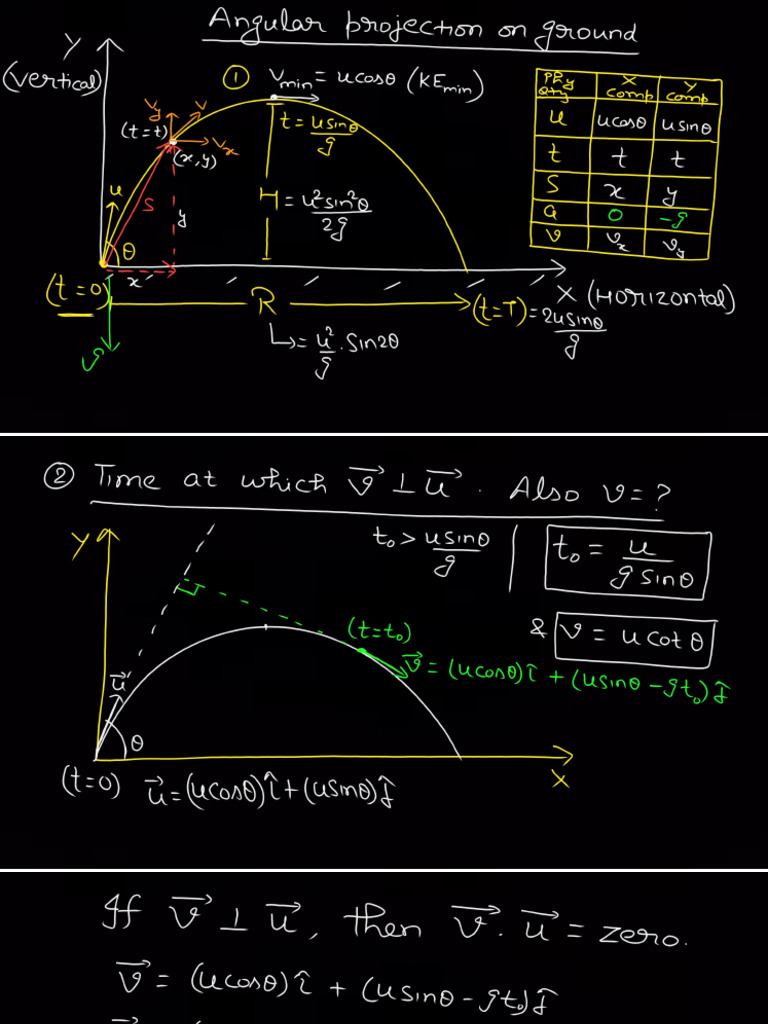 Angular projection on ground
Y
(Vertical)
① Vmin = ucosθ (KEmin)
PRy Qty X comp Y comp
u ucosθ usinθ
t t t
S x y
a 0 -g
v vx vy
Vy V
(t=t) Vx
(x,y)
t = usinθ/g
u S y
H = u²sin²θ/2g
θ
x
(t=0)
R
(t=T) = 2usinθ/g
X (Horizontal)
g
↳ = u²/g . Sin2θ
② Time at which v⃗ ⊥ u⃗ . Also v = ?
Y
t₀ > usinθ/g | t₀ = u/gsinθ
(t=t₀)
& v = ucotθ
v⃗ = (ucosθ)î + (usinθ - gt₀)ĵ
u⃗
θ
X
(t=0) u⃗ = (ucosθ)î + (usinθ)ĵ
If v⃗ ⊥ u⃗, then v⃗ . u⃗ = zero.
v⃗ = (ucosθ)î + (usinθ - gt₀)ĵ